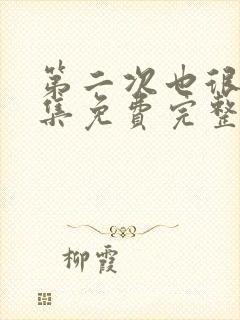 第二次也很
集免费完整
柳霞